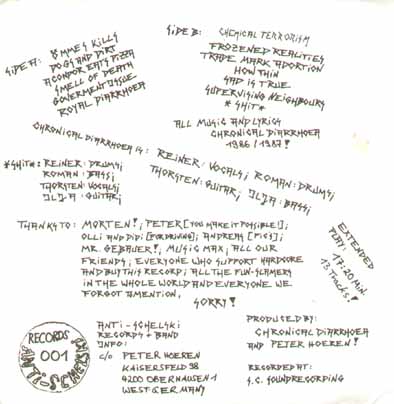 SIDE A:
8 MMES KILLS
DOGS AND DIRT
A CONDOR EATS PIZZA
SMELL OF DEATH
GOVERMENT ISSUE
ROYAL DIARRHOEA
SIDE B:
CHEMICAL TERRORISM
FROZENED REALITIES
TRADE MARK ADORTION
HOW THIN
SAD IS TRUE
SUPERVISING NEIGHBOURS
* SHIT *
ALL MUSIC AND LYRICS
CHRONICAL DIARRHOEA
1986/1987!
CHRONICAL DIARRHOEA IS: REINER: VOCALS; ROMAN: DRUMS;
THORSTEN: GUITAR; ILJA: BASS;
*SHIT*: REINER: DRUMS;
ROMAN: BASS;
THORSTEN: VOCALS;
ILJA: GUITAR;
THANKS TO: MORTEN!; PETER [YOU MAKE IT POSSIBLE!];
OLLI AND DIDI [FOR DRUMS]; ANDREAS [PIGS];
MR. GEBAUER!, MUSIC MAX; ALL OUR
FRIENDS; EVERYONE WHO SUPPORT HARDCORE
AND BUY THIS RECORD; ALL THE FUN-SLAMERS
IN THE WHOLE WORLD AND EVERYONE WE
FORGOT A MENTION,
SORRY!
EXTENDED
PLAY: 17:20 MIN.
13 TRACKS!
RECORDS
001
ANTI-SCHELSKI
ANTI-SCHELSKI
RECORDS + BAND
INFO:
c/o PETER HOEREN
KAISERSFELD 98
4200 OBERHAUSEN 1
WEST GERMANY
PRODUCED BY:
CHRONICAL DIARRHOEA
AND PETER HOEREN!
RECORDED AT:
S.C. SOUNDRECORDING